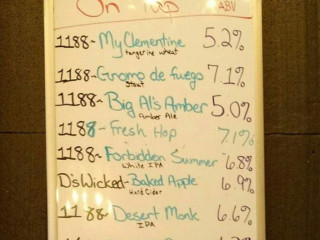 On ABV
1188- My Clementine 5.2%
tangerine wheat
1188- Gnomo de fuego 7.1%
Stout
1188- Big Al's Amber 5.0%
Amber Ale
1188- Fresh Hop 7.1%
1188- Forbidden Summer 6.8%
White IPA
D'sWicked- Baked Apple 6.9%
Hard Cider
1188- Desert Monk 6.6%
IPA